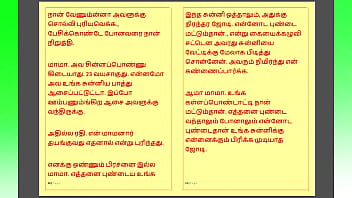 நான் வேணும்ன்னா அவளுக்கு
சொல்லி புரியவெக்க,,
பேசிக்கொண்டே போனவரை நான்
நிறுத்தி.
மாமா. அவ சின்னப்பொண்ணு
கிடையாது. 23 வயசாகுது. என்னமோ
அவ உங்க சுன்னிய பாத்து
ஆசைப்பட்டுட்டா. இப்போ
ஊம்பனும்ங்கிற ஆசை அவளுக்கு
வந்திருக்கு.
அதில்லரதி. என் மாமனார்
தயங்குவது எதனால் என்று புரிந்தது.
எனக்கு ஒண்ணும் பிரச்னை இல்ல
மாமா. எத்தனை புண்டைய உங்க
இந்த சுன்னி ஒத்தாலும், அதுக்கு
நிரந்தர ஜோடி, என்னோட புண்டை
மட்டும்தான் , என்று கையைக்கழுவி
சட்டென அவரது சுன்னியை
வேட்டிக்கு மேலாக பிடித்து
சொன்னேன். அவரும் நிமிர்ந்து என்
கண்ணைப்பார்க்க.
ஆமா மாமா. உங்க
கள்ளப்பொண்டாட்டி நான்
மட்டும்தான். எத்தனை புண்டை
வந்தாலும் போனாலும் என்னோட
புண்டைதான் உங்க சுன்னிக்கு
என்னைக்கும் பிரிக்க முடியாத
ஜோடி.